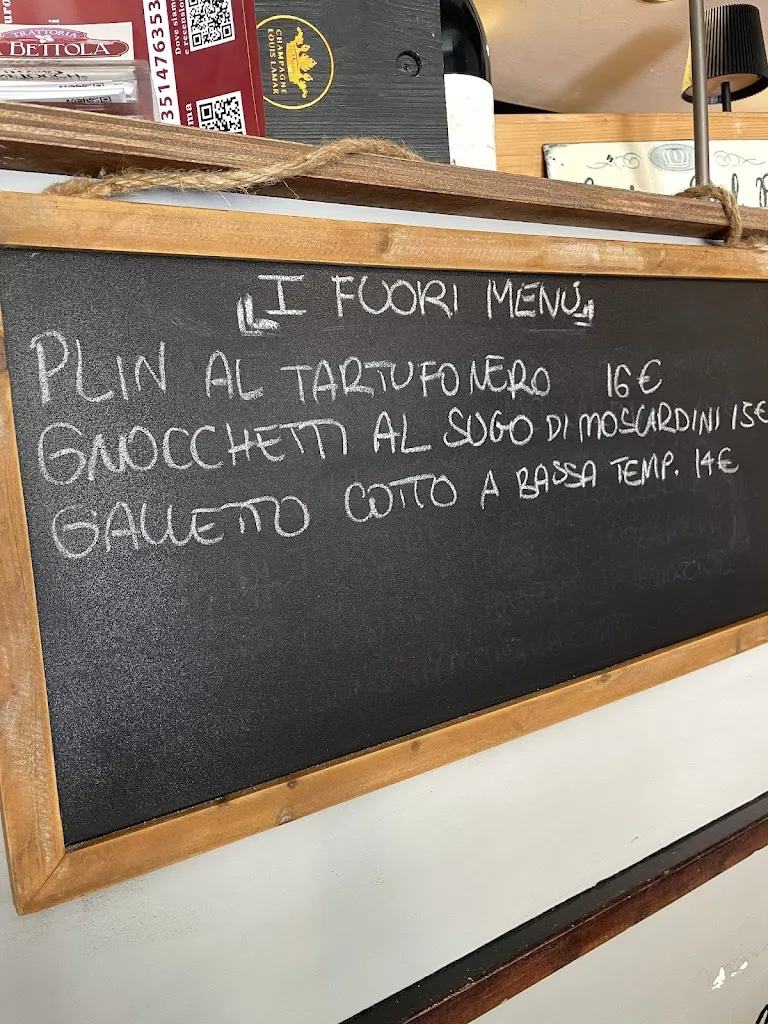 TRATTORIA
BETTOLA
351476353
Dove siam
e recension
CHAMPAGNE
LOUIS LAMAR
I FUORI MENÙ
PLIN AL TARTUFO NERO 16€
GNOCCHETTI AL SUGO DI MOSCARDINI 15€
GALLETTO COTTO A BASSA TEMP. 14€